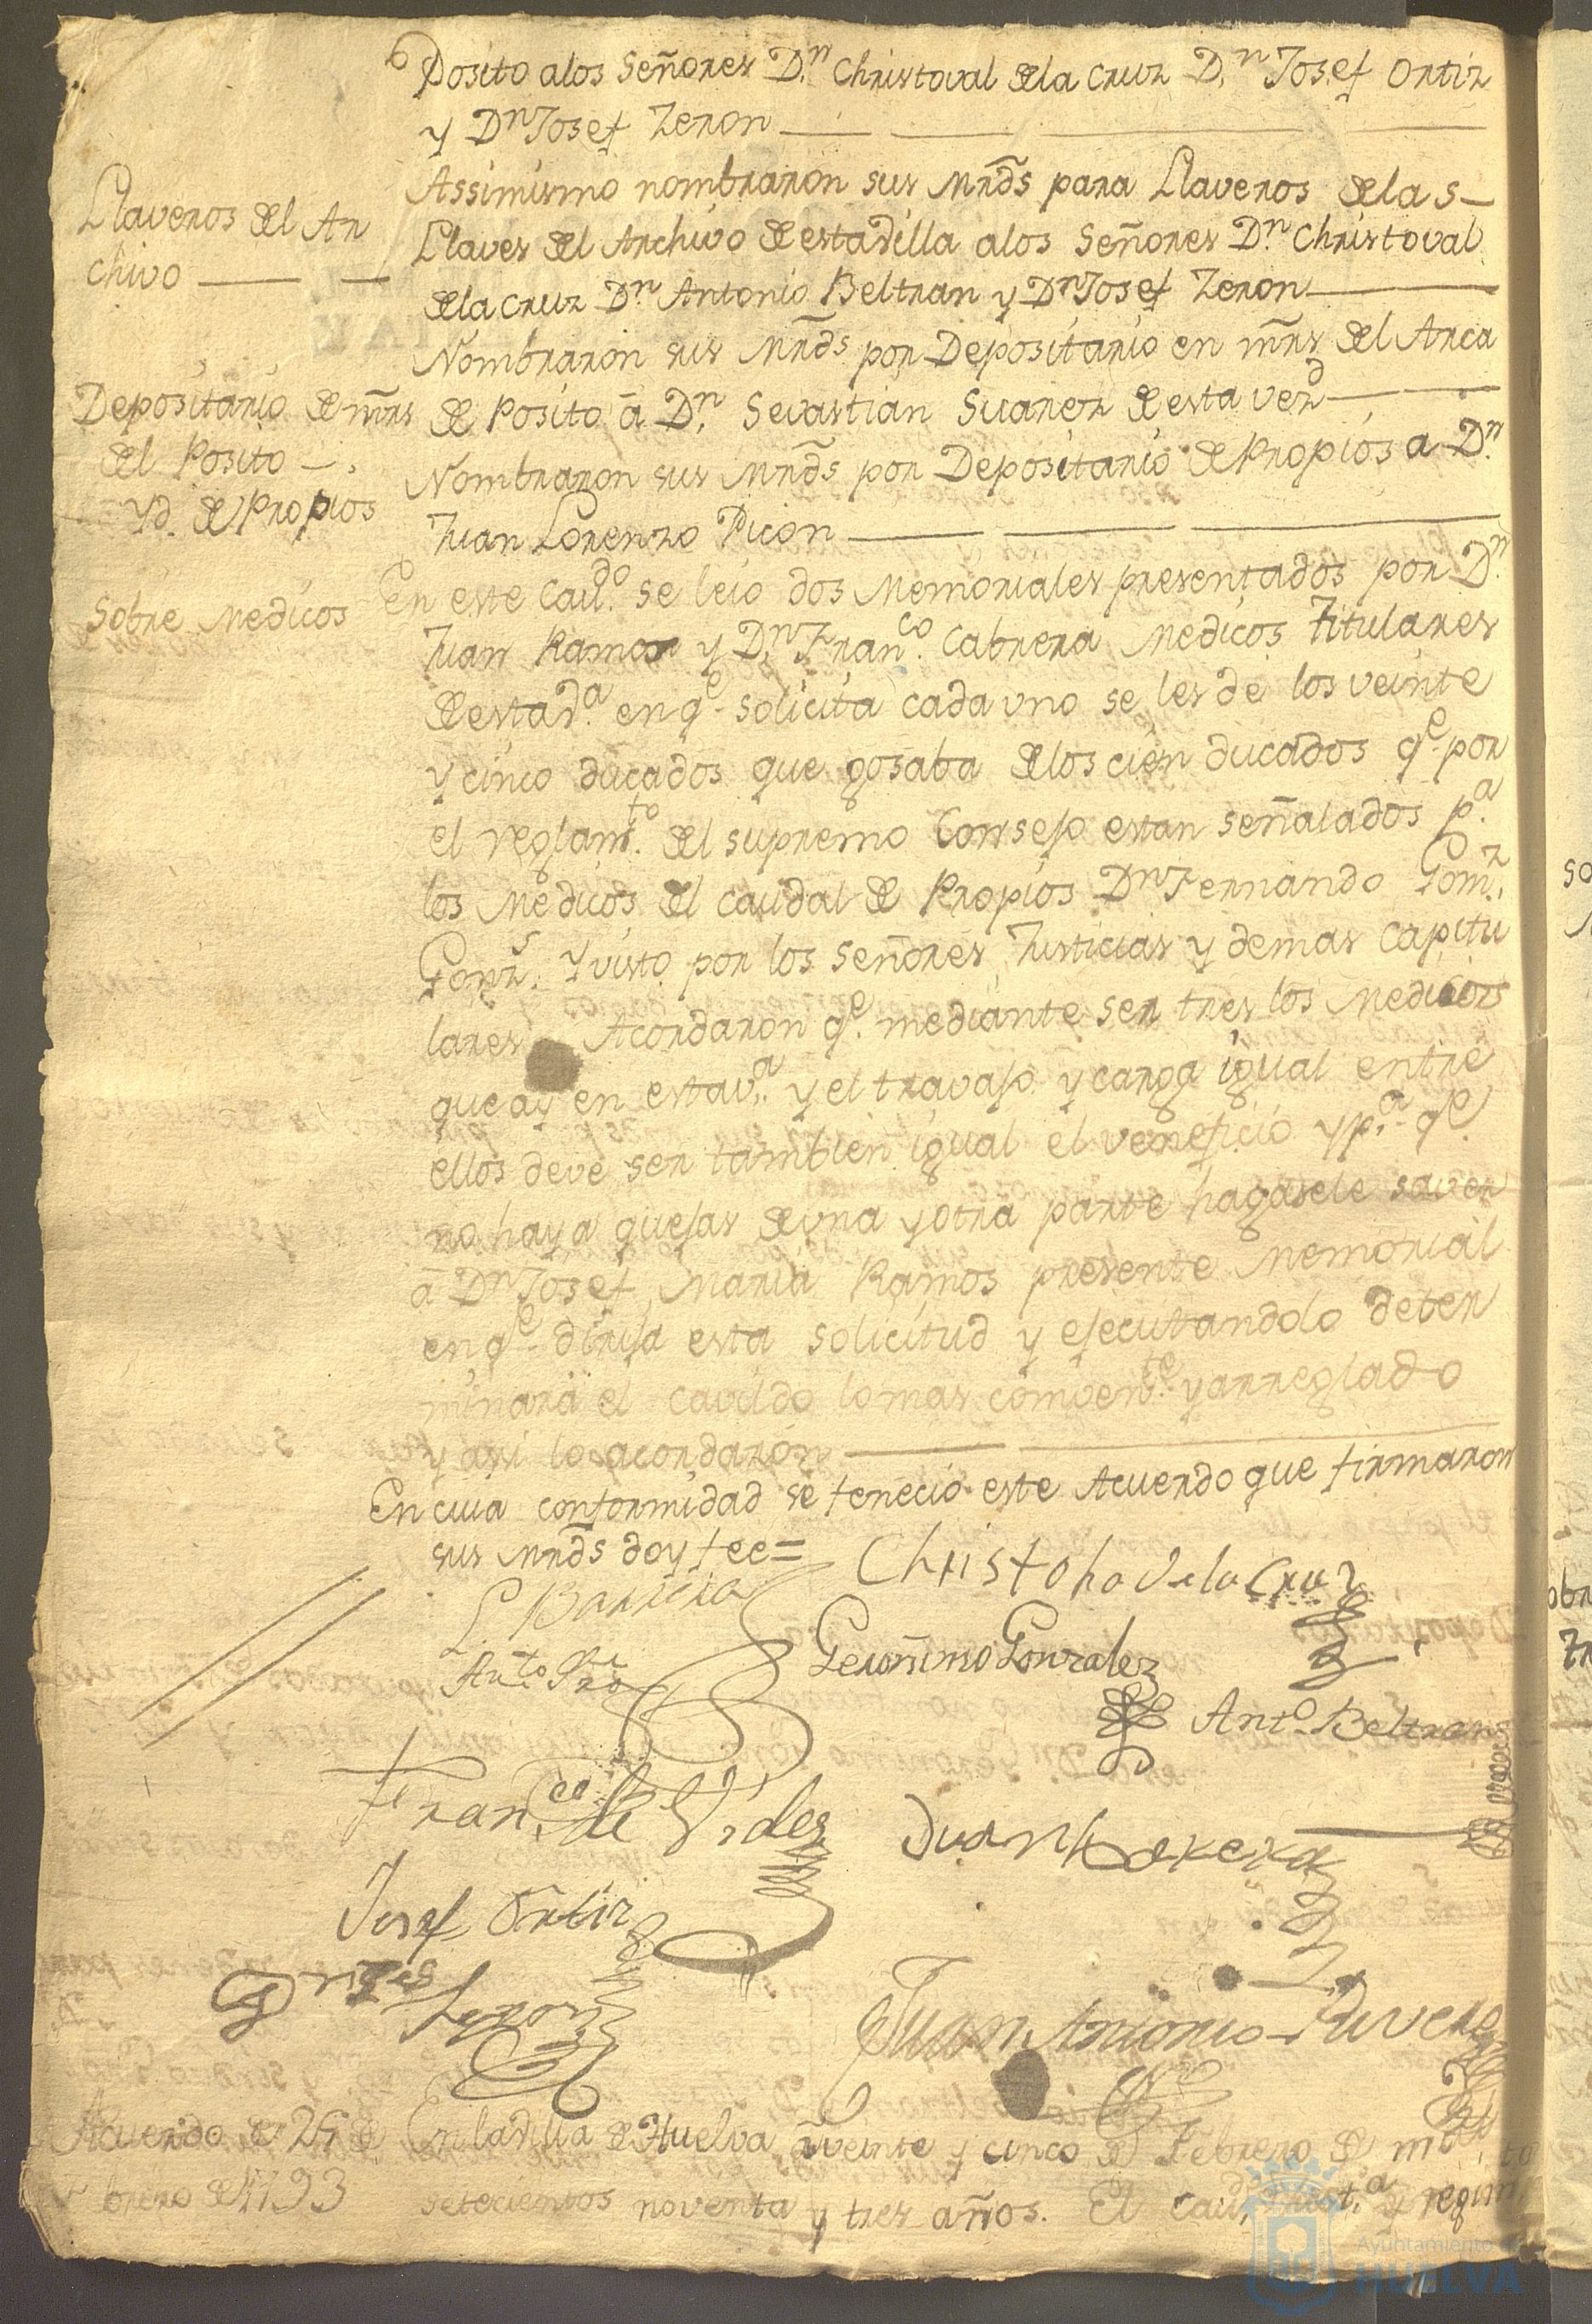 Posito alos Señores D.n Christoval dela Cruz D.n Josef Ortiz
y Dn Josef Zeron
Llaveros del Ar
chivo
Assimismo nombraron sus Mrds para Llaveros delas
Llaves del Archivo de estadilla alos Señores Dn Christoval
dela Cruz Dn Antonio Beltran y Dn Josef Zeron
Depositario de mrs
del Posito
Yd. de Propios
Nombraron sus Mrds por Depositario en mrs del Arca
de Posito á Dn Sevastian Suarez de esta vezd
Nombraron sus Mrds por Depositario de Propios a Dn
Juan Lorenzo Picon
Sobre Medicos
En este Cau.do se leio dos Memoriales presentados por Dn
Juan Ramos y Dn Fran.co Cabrera Medicos Titulares
de esta d.a en q.e solicita cada uno se les de los veinte
y cinco ducados que gosaba delos cien ducados q.e por
el reglam.to del supremo Consejo estan señalados p.a
los Medicos del caudal de Propios Dn Fernando Gom.z
Gonz.s Y visto por los Señores Justicias y demas Capitu
lares Acordaron q.e mediante ser tres los Medicos
que ay en esta v.a y el travajo y carga igual entre
ellos deve ser tambien igual el veneficio y p.a q.e
no haya quejas de una y otra parte hagasele saver
á Dn Josef Maria Ramos presente Memorial
en q.e dirija esta solicitud y ejecutandolo deter
minará el Cavildo lo mas comben.te y arreglado
y assi lo acordaron
En cuia conformidad se feneció este Acuerdo que firmaron
sus Mrds doy fee=
L. Barrera
Christoval dela Cruz
Geronimo Gonzalez
Ant.o Beltran
Fran.co de Videz
Josef Ortiz
Zeron
Juan Antonio Rivero
Acuerdo de 25 de
Febrero de 1793
En la dilla de Huelva á veinte y cinco de Febrero de mil
setecientos noventa y tres años. El Cau.do Just.a y regim.to
Ayuntamiento
HUELVA